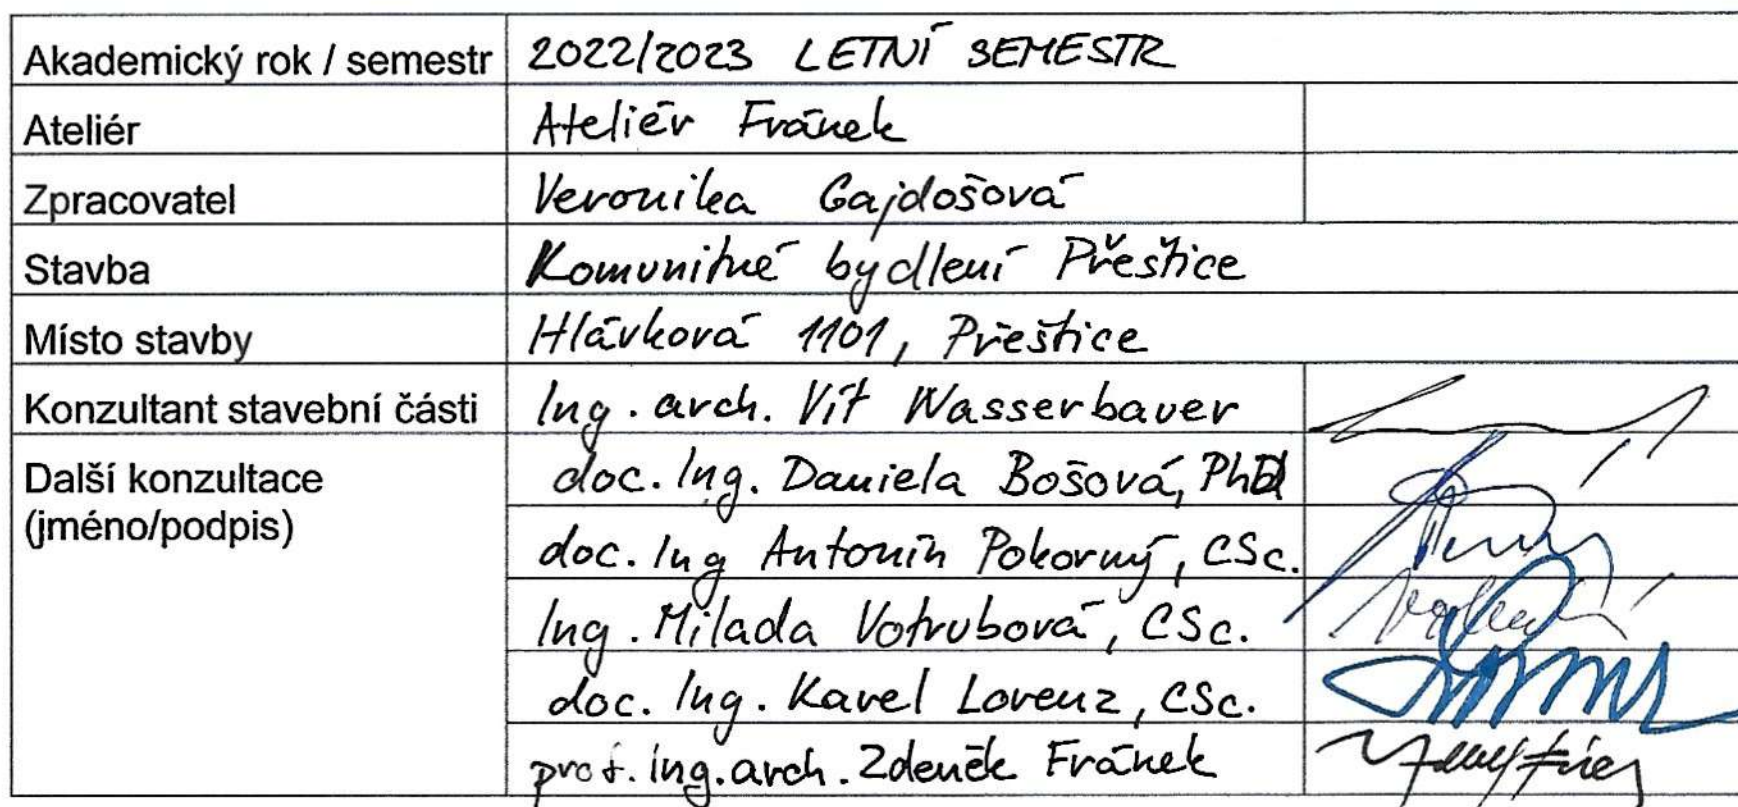 Akademický rok / semestr 2022/2023 LETNÍ SEMESTR
Ateliér Ateliér Fránek
Zpracovatel Veronika Gajdošová
Stavba Komunitné bydlení Přeštice
Místo stavby Hlávková 1101, Přeštice
Konzultant stavební části Ing. arch. Vít Wasserbauer
Další konzultace doc. Ing. Daniela Bošová, PhD
(jméno/podpis)
doc. Ing Antonín Pokorný, CSc.
Ing. Milada Votrubová, CSc.
doc. Ing. Karel Lorenz, CSc.
prof. ing. arch. Zdeněk Fránek